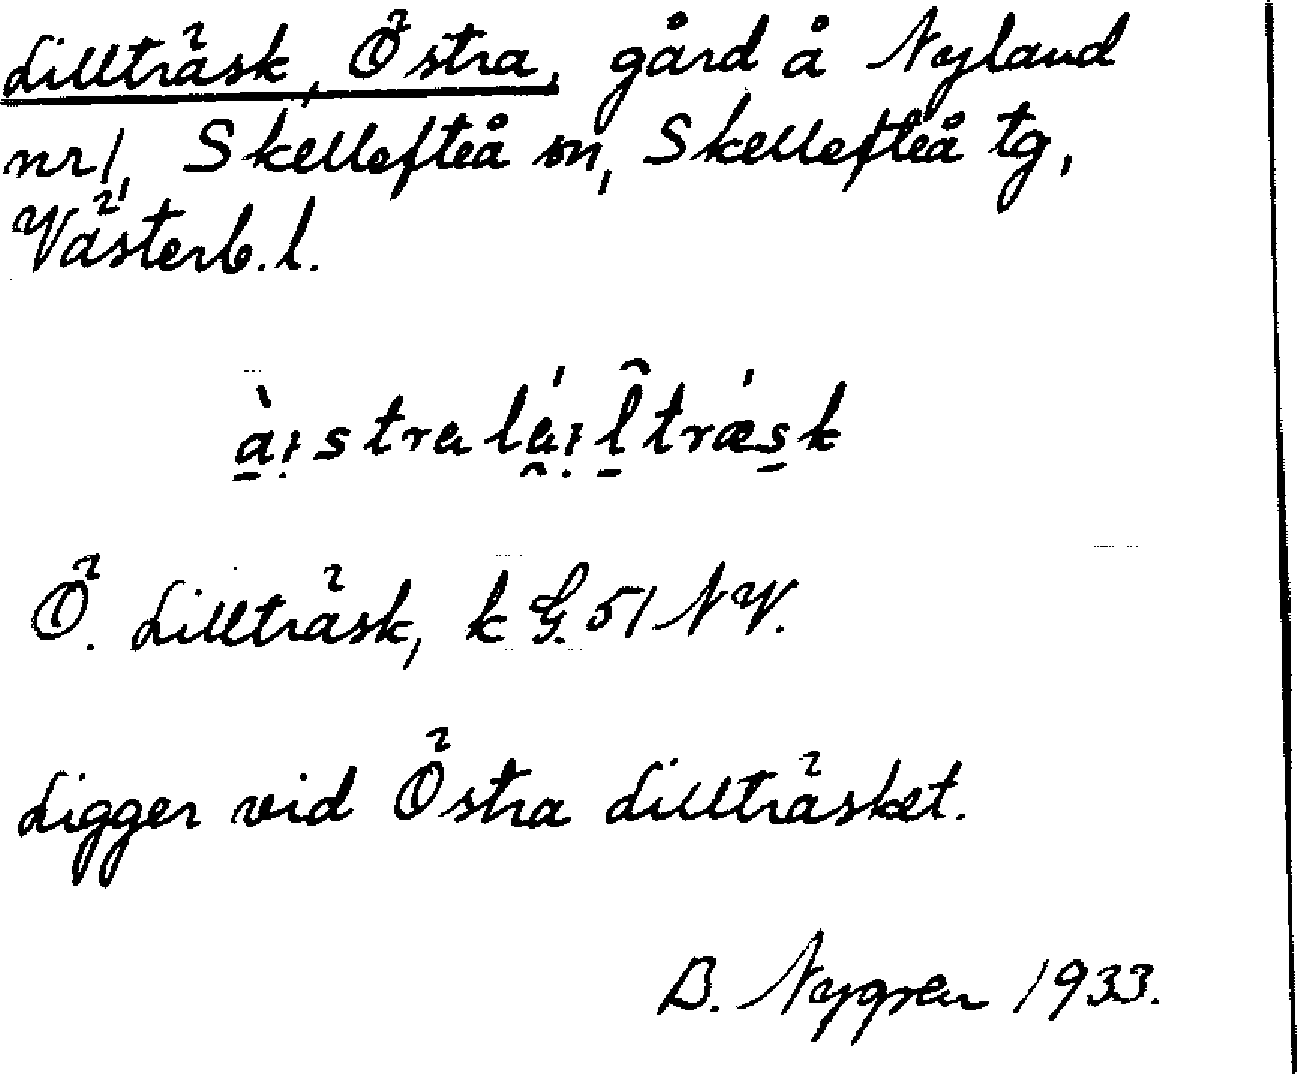 Lillträsk, Östra, gård å Nyland
nr 1, Skellefteå sn, Skellefteå tg,
Västerb. l.
Ö. Lillträsk, k G. 51 NV.
Ligger vid Östra Lillträsket.
B. Nygren 1933.